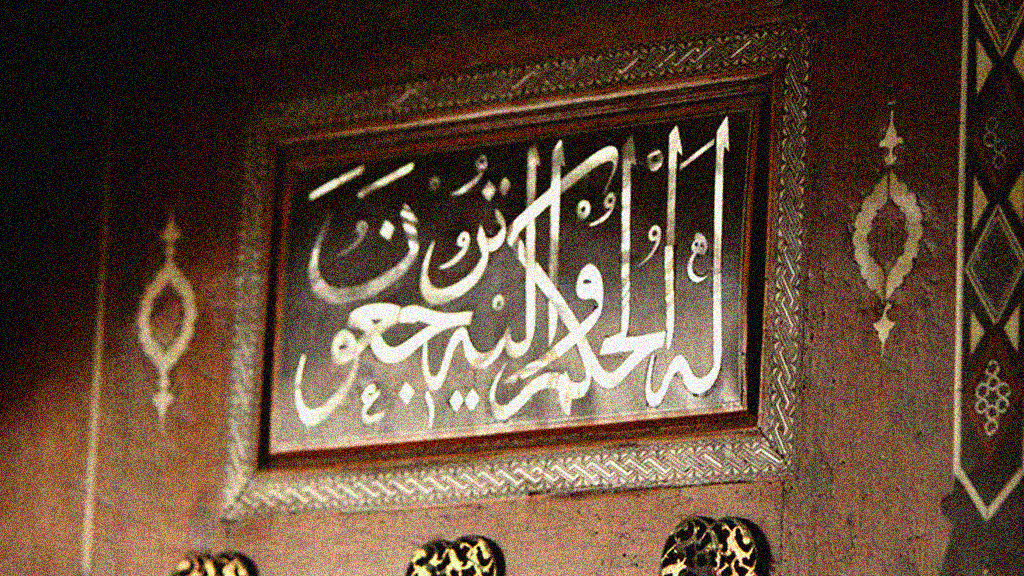 له الحكم وإليه ترجعون